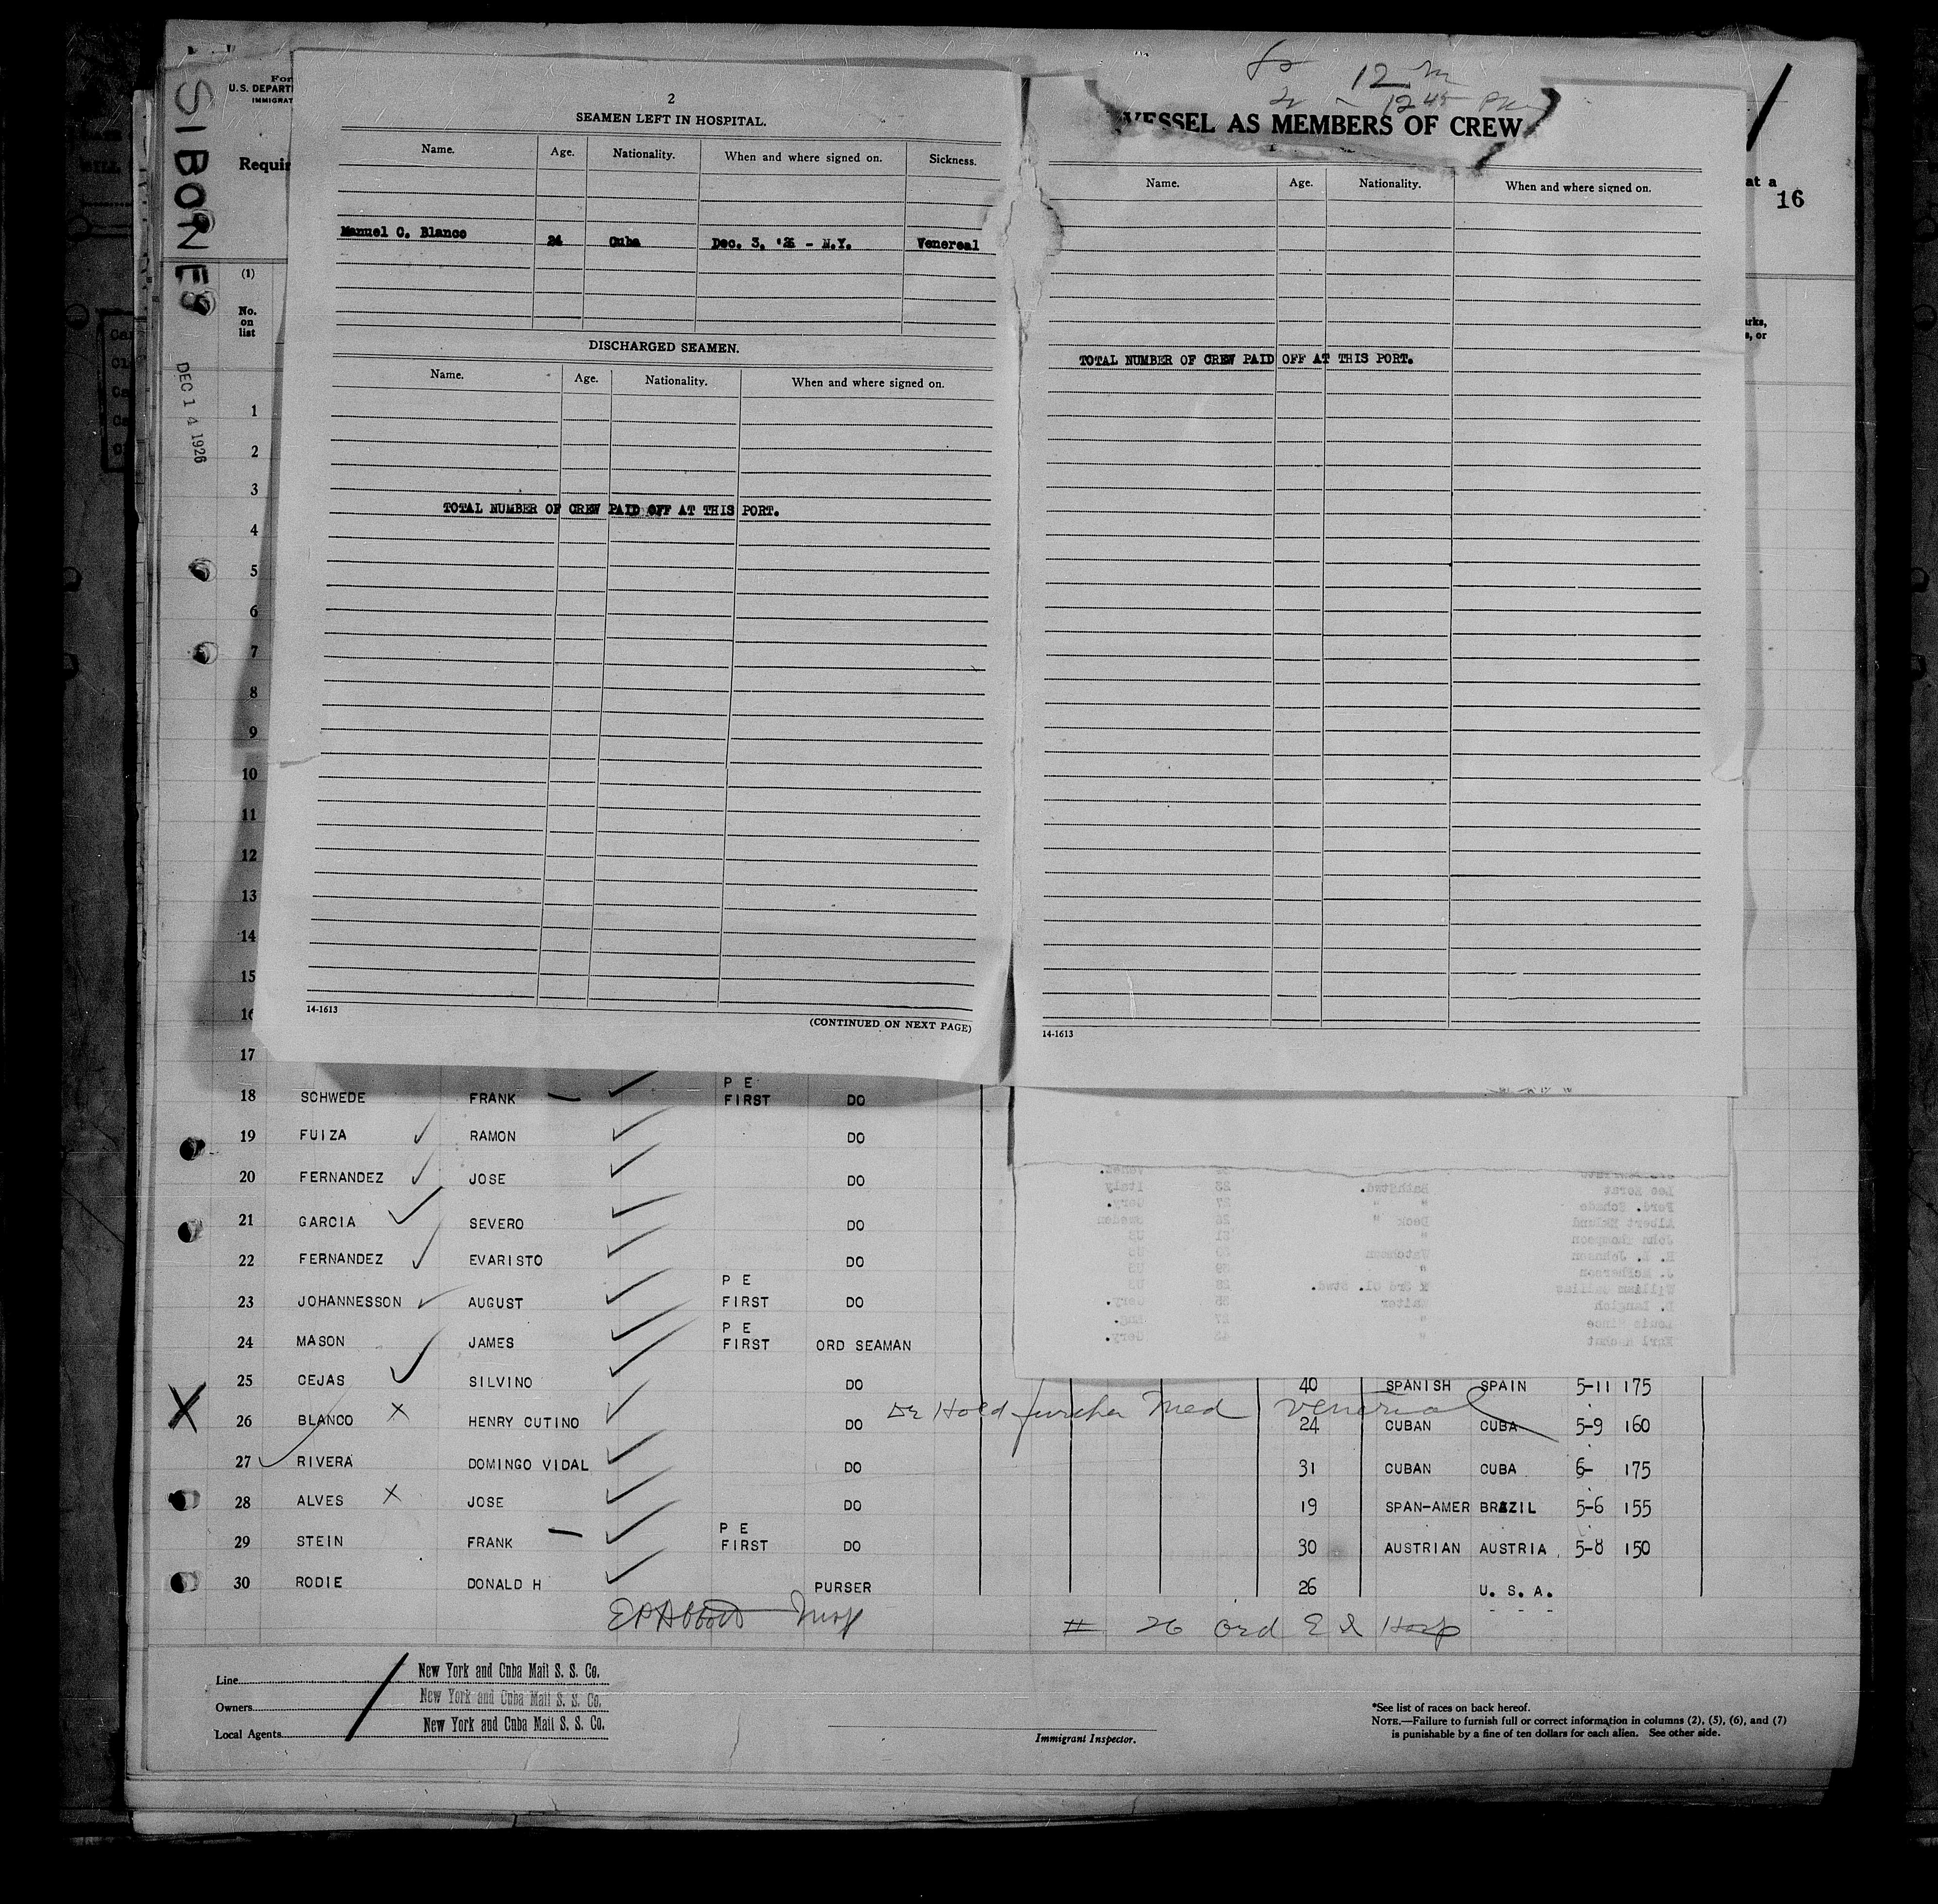 SIBONEY
DEC 14 1926
For
U.S. DEPART
IMMIGRAT
Requir
(1)
No.
on
list
2
SEAMEN LEFT IN HOSPITAL.
Name. Age. Nationality. When and where signed on. Sickness.
Manuel C. Blanco 24 Cuba Dec. 3, '26 - N.Y. Venereal
DISCHARGED SEAMEN.
Name. Age. Nationality. When and where signed on.
TOTAL NUMBER OF CREW PAID OFF AT THIS PORT.
14-1613
(CONTINUED ON NEXT PAGE)
12 m
12 45 PM
VESSEL AS MEMBERS OF CREW
Name. Age. Nationality. When and where signed on.
TOTAL NUMBER OF CREW PAID OFF AT THIS PORT.
14-1613
at a
16
rks,
s, or
1
2
3
4
5
6
7
8
9
10
11
12
13
14
15
16
17
18 SCHWEDE FRANK P E FIRST DO
19 FUIZA RAMON DO
20 FERNANDEZ JOSE DO
21 GARCIA SEVERO DO
22 FERNANDEZ EVARISTO DO
23 JOHANNESSON AUGUST P E FIRST DO
24 MASON JAMES P E FIRST ORD SEAMAN
25 CEJAS SILVINO DO 40 SPANISH SPAIN 5-11 175
Hold further Med Venerial
26 BLANCO HENRY CUTINO DO 24 CUBAN CUBA 5-9 160
27 RIVERA DOMINGO VIDAL DO 31 CUBAN CUBA 6- 175
28 ALVES JOSE DO 19 SPAN-AMER BRAZIL 5-6 155
29 STEIN FRANK P E FIRST DO 30 AUSTRIAN AUSTRIA 5-8 150
30 RODIE DONALD H PURSER 26 U. S. A.
# 26 Ord E I Hosp
Line New York and Cuba Mail S. S. Co.
Owners New York and Cuba Mail S. S. Co.
Local Agents New York and Cuba Mail S. S. Co.
Immigrant Inspector.
*See list of races on back hereof.
NOTE.—Failure to furnish full or correct information in columns (2), (5), (6), and (7)
is punishable by a fine of ten dollars for each alien. See other side.